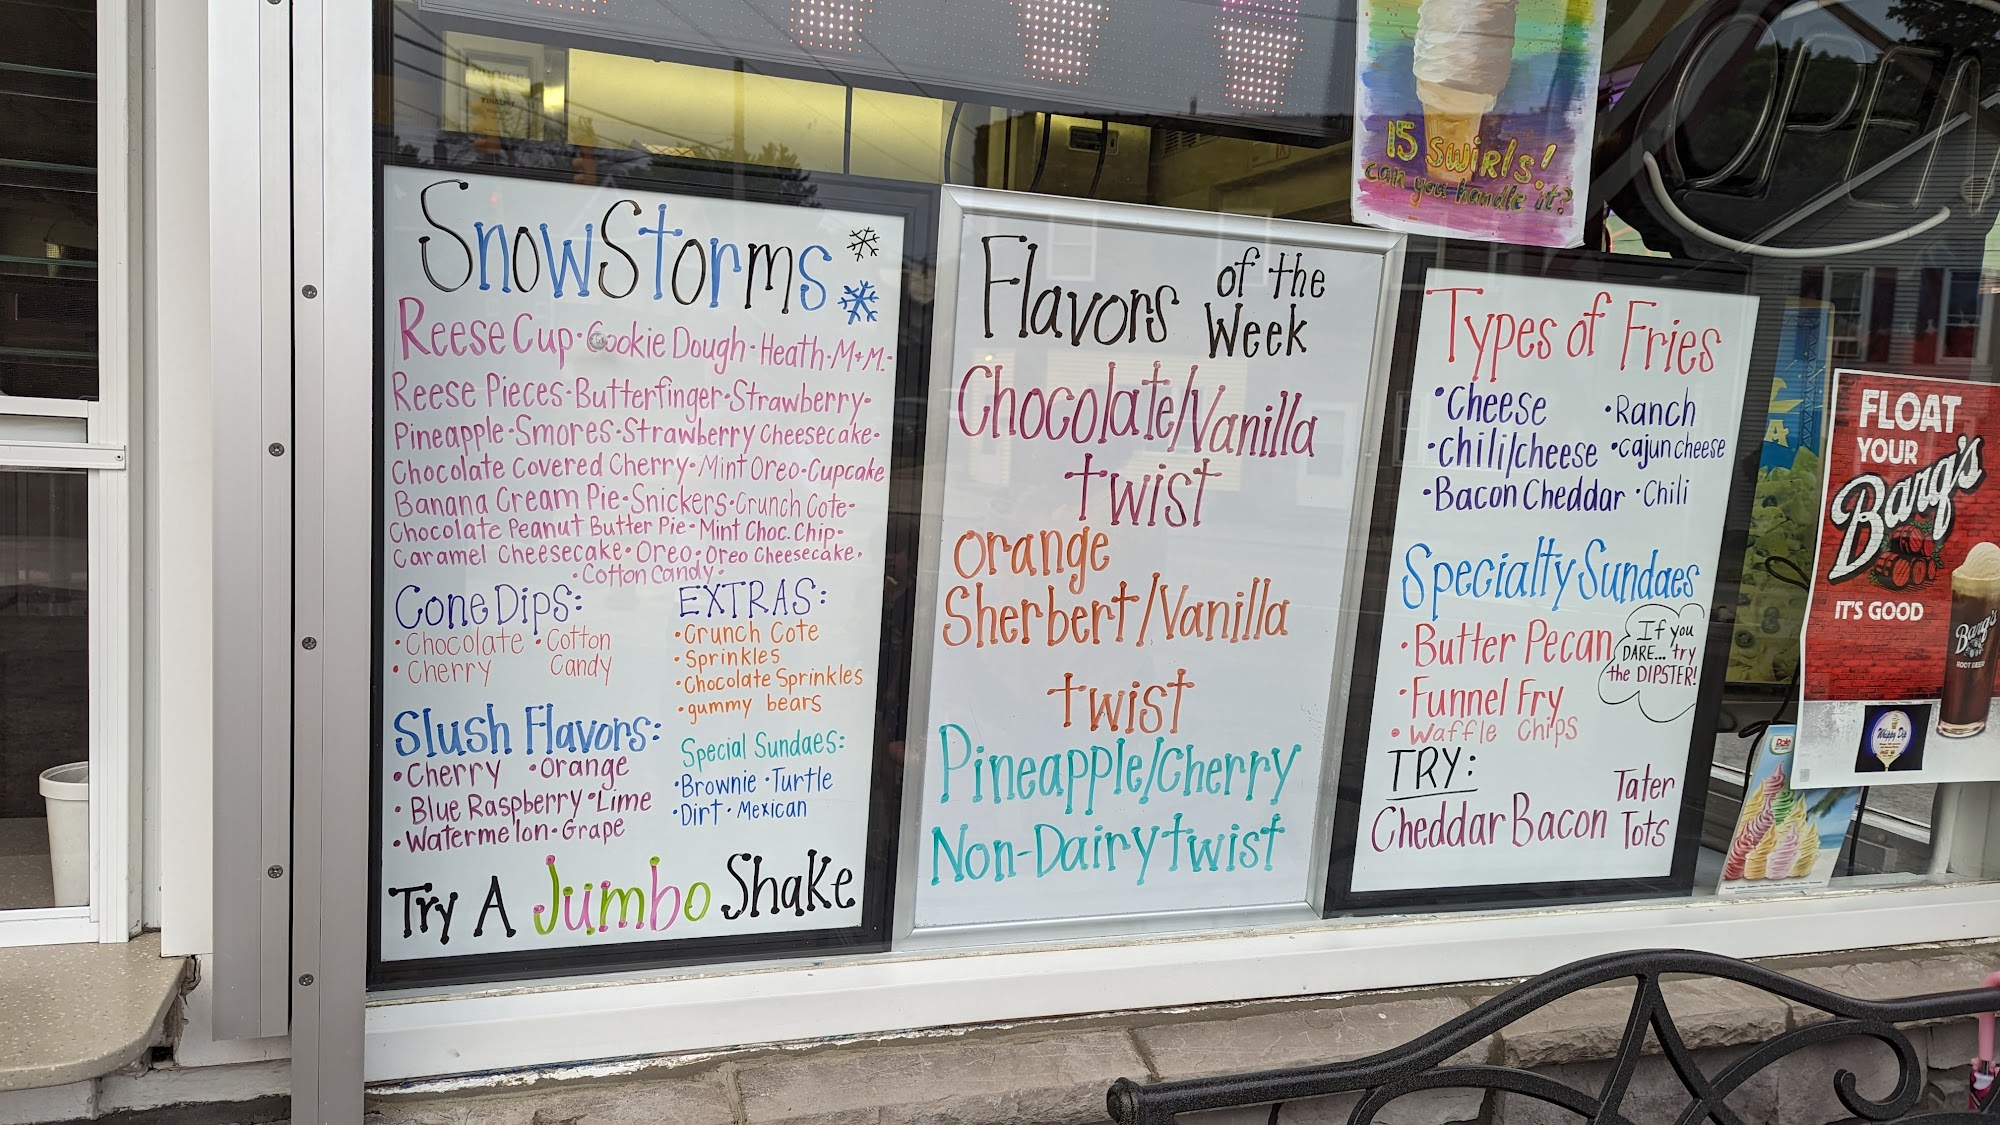 SnowStorms
Reese Cup · Cookie Dough · Heath · M+M ·
Reese Pieces · Butterfinger · Strawberry ·
Pineapple · Smores · Strawberry Cheesecake ·
Chocolate Covered Cherry · Mint Oreo · Cupcake
Banana Cream Pie · Snickers · Crunch Cote ·
Chocolate Peanut Butter Pie · Mint Choc. Chip ·
Caramel Cheesecake · Oreo · Oreo Cheesecake ·
· Cotton Candy ·
Cone Dips:
· Chocolate · Cotton
· Cherry Candy
EXTRAS:
· Crunch Cote
· Sprinkles
· Chocolate Sprinkles
· gummy bears
Slush Flavors:
· Cherry · Orange
· Blue Raspberry · Lime
· Watermelon · Grape
Special Sundaes:
· Brownie · Turtle
· Dirt · Mexican
Try A Jumbo Shake
Flavors of the
Week
Chocolate/Vanilla
twist
Orange
Sherbert/Vanilla
twist
Pineapple/Cherry
Non-Dairy twist
Types of Fries
· Cheese · Ranch
· Chili/cheese · Cajun cheese
· Bacon Cheddar · Chili
Specialty Sundaes
· Butter Pecan
· Funnel Fry
· Waffle Chips
If you
DARE... try
the DIPSTER!
TRY:
Cheddar Bacon Tater
Tots
15 swirls!
can you handle it?
OPEN
FLOAT
YOUR
Barq's
IT'S GOOD
Barq's
ROOT BEER
Whippy Dip
Dole